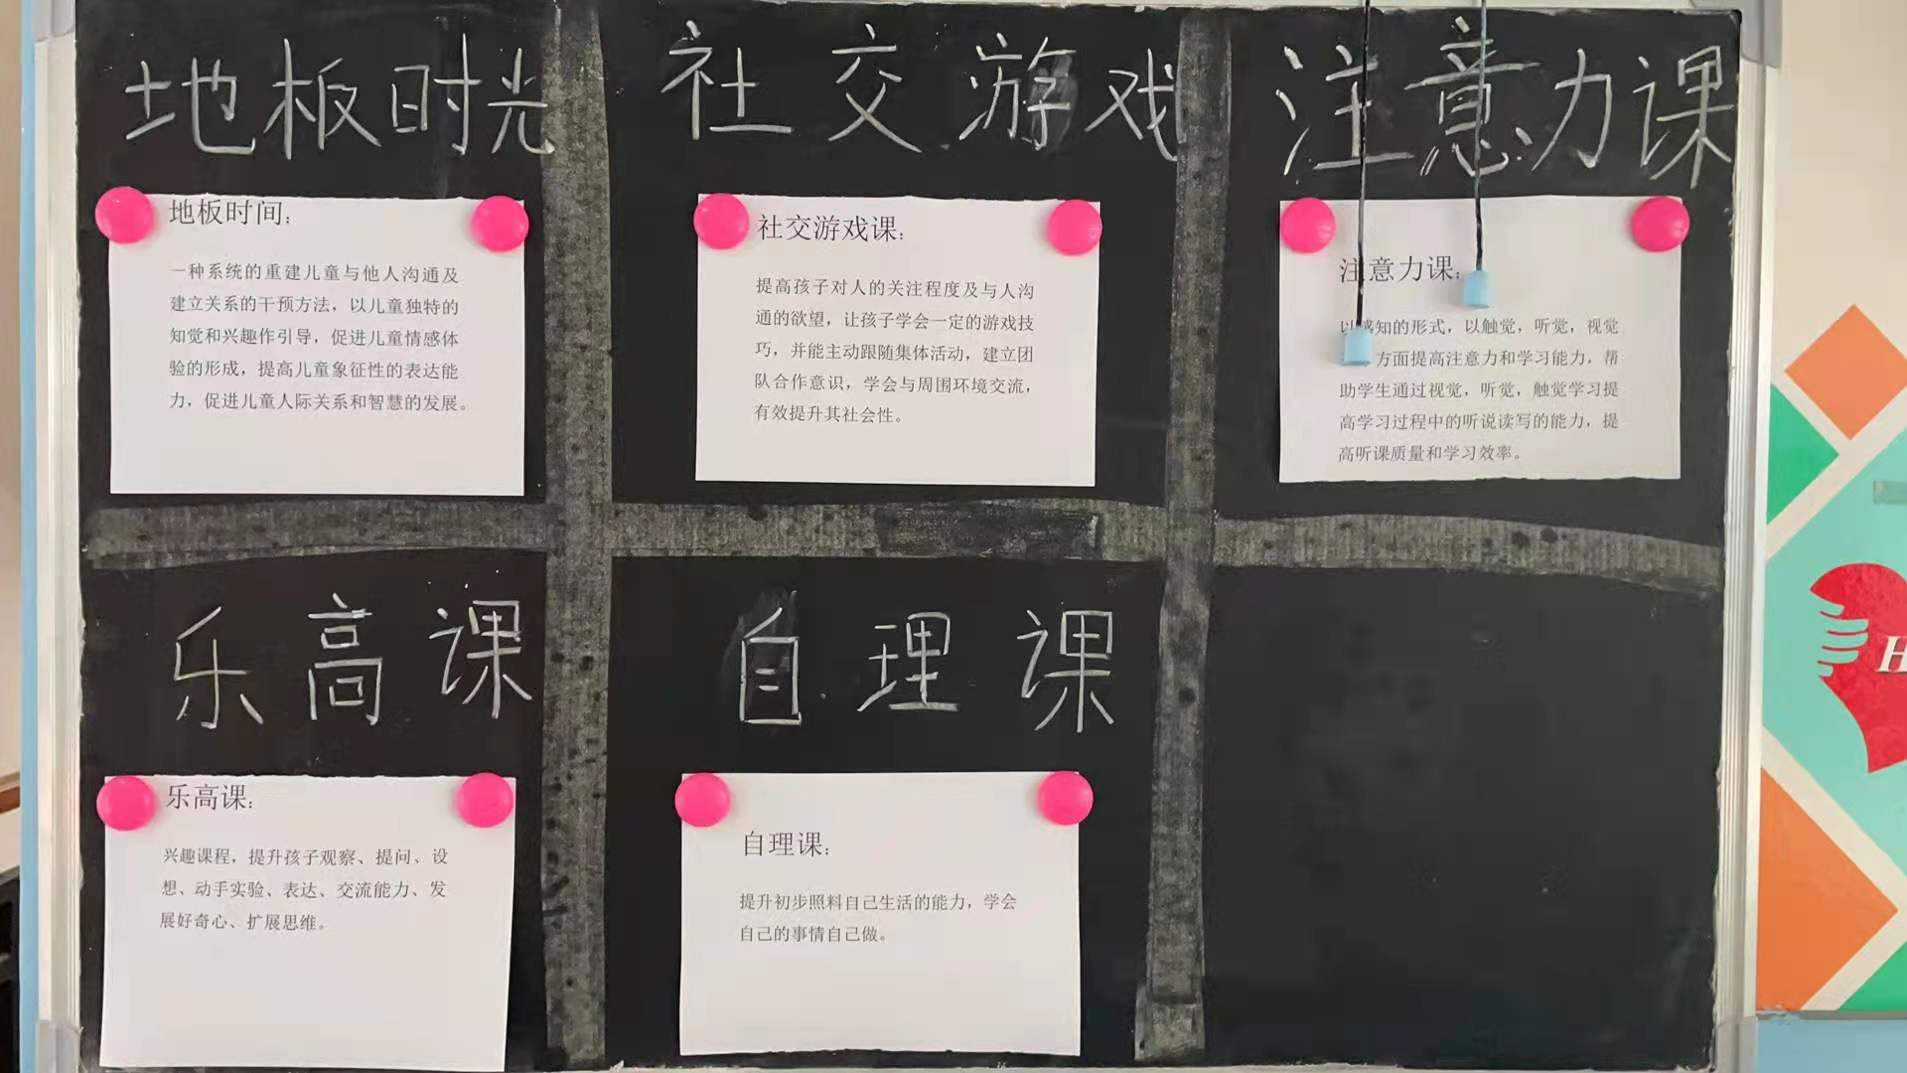 地板时光
社交游戏
注意力课
地板时间：
一种系统的重建儿童与他人沟通及
建立关系的干预方法，以儿童独特的
知觉和兴趣作引导，促进儿童情感体
验的形成，提高儿童象征性的表达能
力，促进儿童人际关系和智慧的发展。
社交游戏课：
提高孩子对人的关注程度及与人沟
通的欲望，让孩子学会一定的游戏技
巧，并能主动跟随集体活动，建立团
队合作意识，学会与周围环境交流，
有效提升其社会性。
注意力课：
以感知的形式，以触觉，听觉，视觉
方面提高注意力和学习能力，帮
助学生通过视觉，听觉，触觉学习提
高学习过程中的听说读写的能力，提
高听课质量和学习效率。
乐高课
自理课
乐高课：
兴趣课程，提升孩子观察、提问、设
想、动手实验、表达、交流能力、发
展好奇心、扩展思维。
自理课：
提升初步照料自己生活的能力，学会
自己的事情自己做。
H